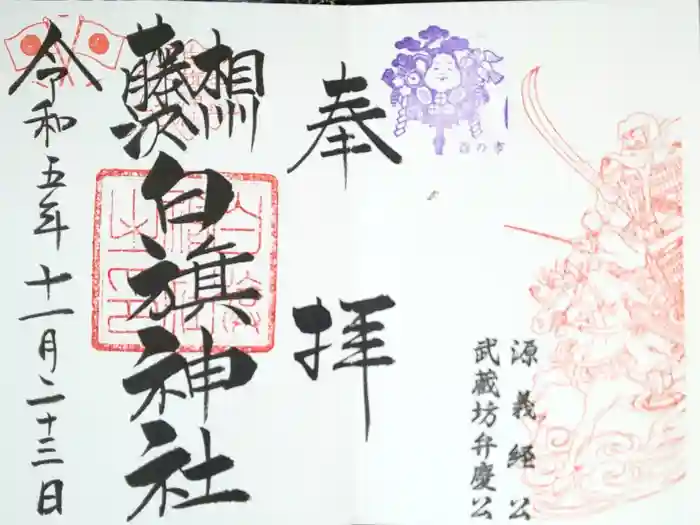 源義経公
武蔵坊弁慶公
酉の市
奉拝
相州
藤沢
白旗神社
令和五年十一月二十三日